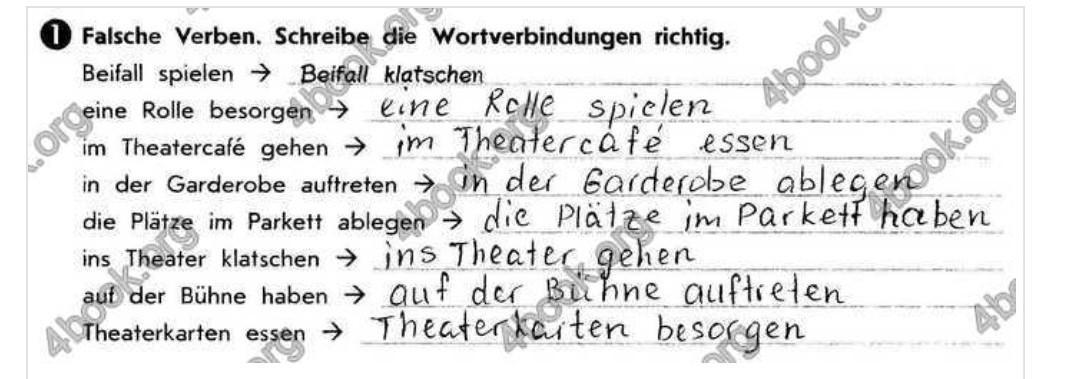 1 Falsche Verben. Schreibe die Wortverbindungen richtig.
Beifall spielen → Beifall klatschen
eine Rolle besorgen → eine Rolle spielen
im Theatercafé gehen → im Theatercafé essen
in der Garderobe auftreten → in der Garderobe ablegen
die Plätze im Parkett ablegen → die Plätze im Parkett haben
ins Theater klatschen → ins Theater gehen
auf der Bühne haben → auf der Bühne auftreten
Theaterkarten essen → Theaterkarten besorgen
4book.org